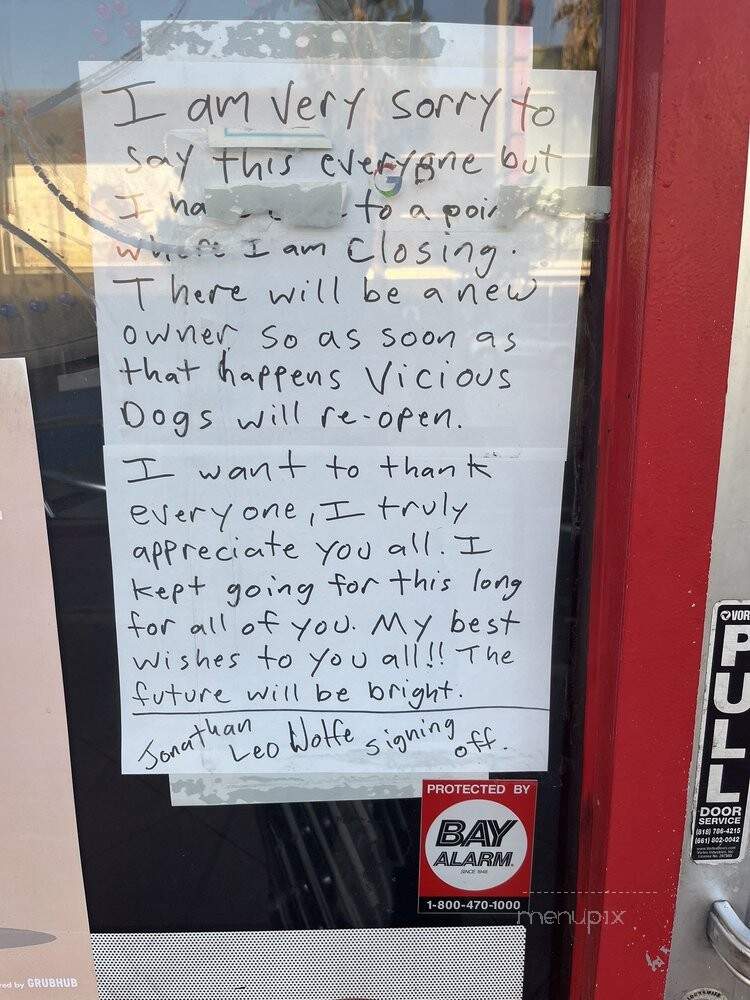 I am very sorry to
say this everyone but
I ha to a poin
where I am closing.
There will be a new
owner, so as soon as
that happens Vicious
Dogs will re-open.
I want to thank
everyone, I truly
appreciate you all. I
kept going for this long
for all of you. My best
wishes to you all!! The
future will be bright.
Jonathan Leo Wolfe signing off.
PROTECTED BY
BAY
ALARM.
SINCE 1946
1-800-470-1000
menupix
VOR
PULL
DOOR
SERVICE
(818) 786-4215
(661) 802-0042
red by GRUBHUB